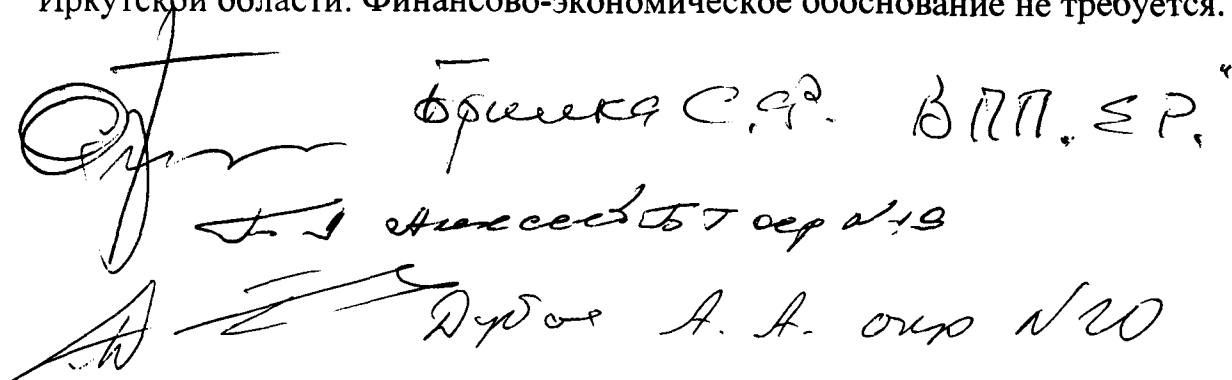 Иркутской области. Финансово-экономическое обоснование не требуется.
Бринка С.Ф. ВПП. ЕР.
Алексеев Б Г окр №19
Дубов А. А. окр №20